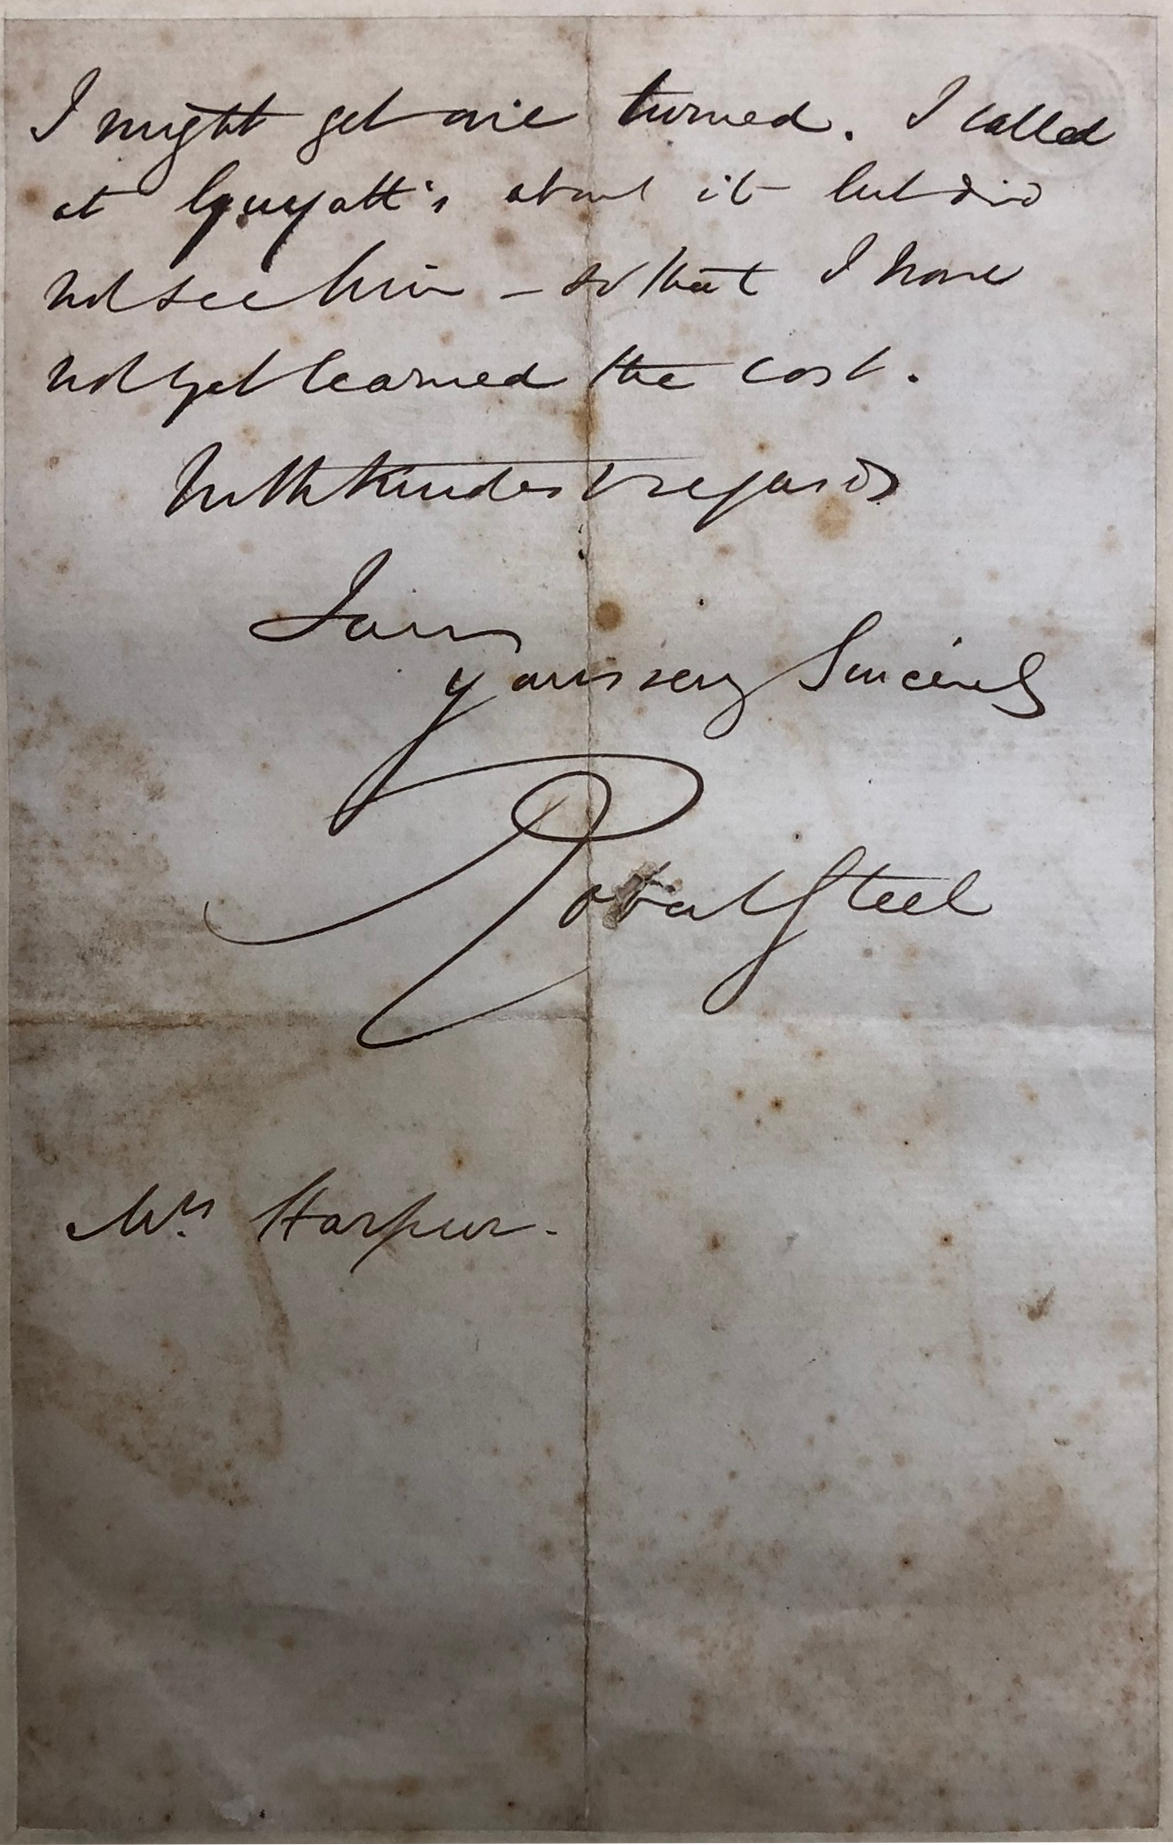 I might get one turned. I called
at Guyatt's about it but did
not see him – so that I have
not yet learned the cost.
With kindest regards
I am
yours very Sincerely
Robert Steel
Mrs Harpur.